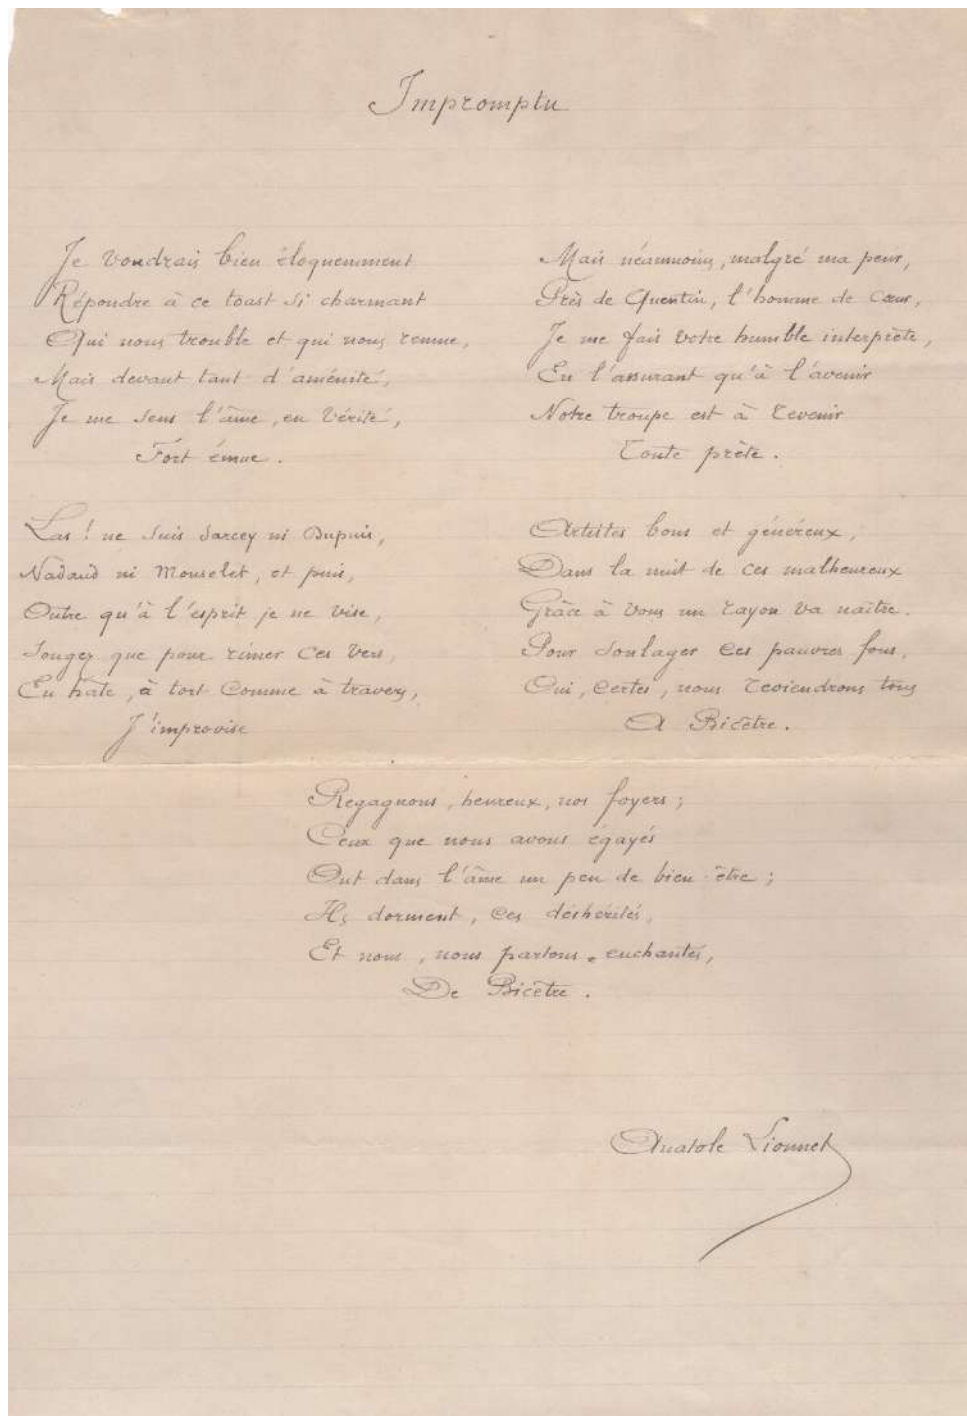 Impromptu
Je voudrais bien éloquemment
Répondre à ce toast si charmant
Qui nous trouble et qui nous remue,
Mais devant tant d'aménité,
Je me sens l'âme, en vérité,
Fort émue.
Las ! ne suis Sarcey ni Dupuis,
Nadaud ni Monselet, et puis,
Outre qu'à l'esprit je ne vise,
Songez que pour rimer ces vers,
En hâte, à tort comme à travers,
J'improvise
Mais néanmoins, malgré ma peur,
Près de Quentin, l'homme de cœur,
Je me fais votre humble interprète,
En l'assurant qu'à l'avenir
Notre troupe est à revenir
Toute prête.
Artistes bons et généreux,
Dans la nuit de ces malheureux
Grâce à vous un rayon va naître.
Pour soulager ces pauvres fous,
Oui, certes, nous reviendrons tous
A Bicêtre.
Regagnons, heureux, nos foyers ;
Ceux que nous avons égayés
Ont dans l'âme un peu de bien-être ;
Ils dorment, ces déshérités,
Et nous, nous partons, enchantés,
De Bicêtre.
Anatole Lionnet